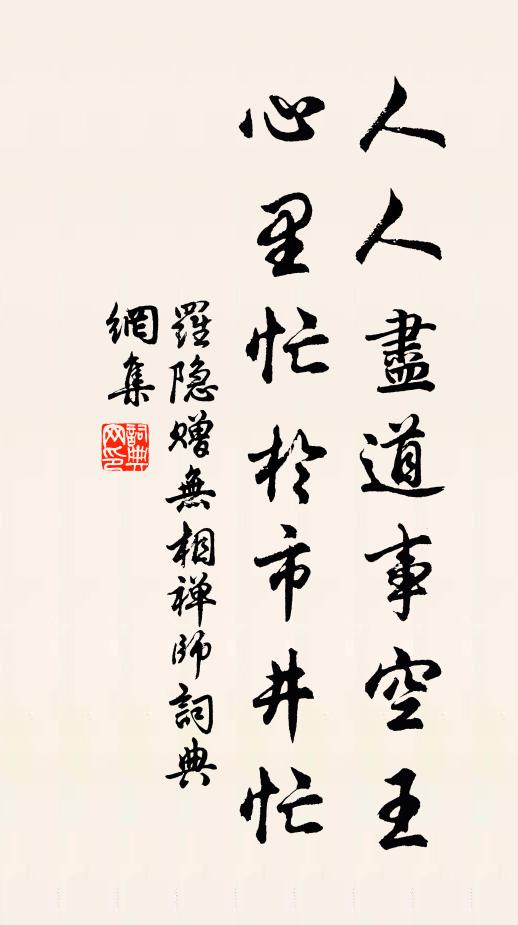 人人盡道事空王
心里忙於市井忙
羅隐贈無相禅師詞典
網集
詞典
网印